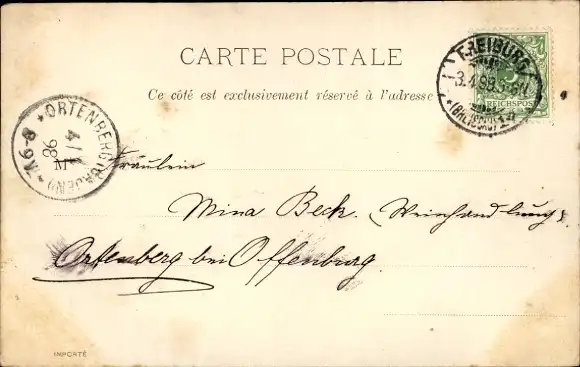 CARTE POSTALE
Ce côté est exclusivement réservé à l'adresse
FREIBURG
3.4.98.
(BREISGAU)
REICHSPOST
ORTENBERG (BADEN)
4/
98
Fräulein
Mina Beck. (Weinhandlung)
Ortenberg bei Offenburg.
IMPORTÉ